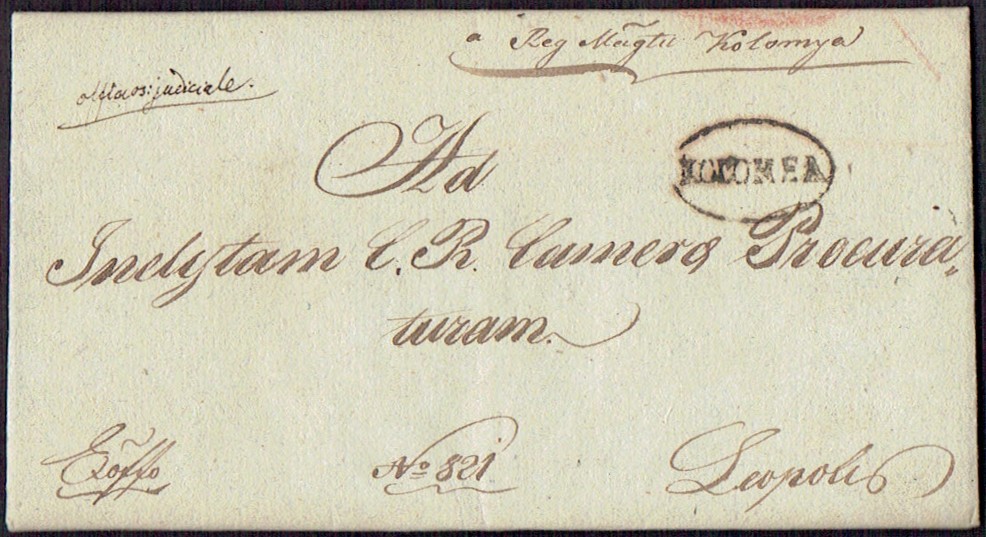 a Reg Magtu Kolomya
officios: judiciale.
Ad
KOLOMEA
Inclytam C. R. Camerq Procura„
turam.
Exõffo
No 821
Leopoli